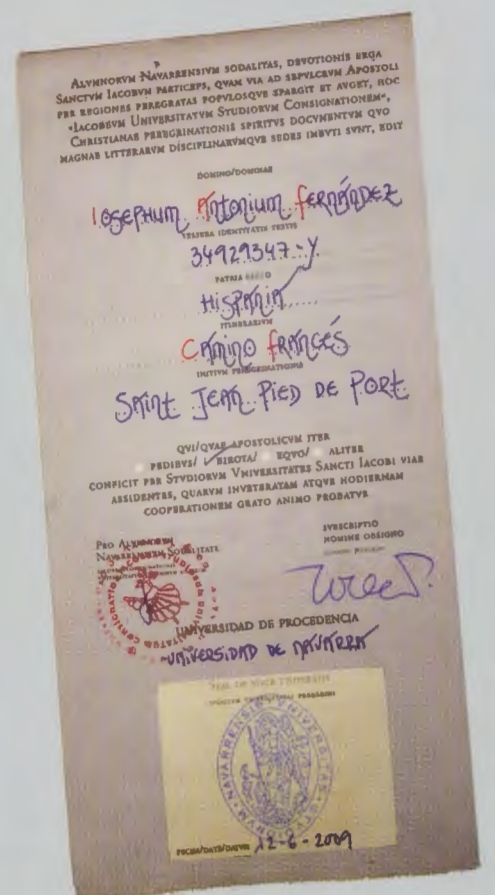 ALVMNORVM NAVARRENSIVM SODALITAS, DEVOTIONIS ERGA
SANCTVM IACOBVM PARTICEPS, QVAM VIA AD SEPVLCRVM APOSTOLI
PER REGIONES PEREGRATAS POPVLOSQVE SPARGIT ET AVGET, HOC
«IACOBEVM UNIVERSITATVM STUDIORVM CONSIGNATIONEM»,
CHRISTIANAE PEREGRINATIONIS SPIRITVS DOCVMENTVM QVO
MAGNAE LITTERARVM DISCIPLINARVMQVE SEDES IMBVTI SVNT, EDIT
DOMINO/DOMINAE
IOSEPHUM ANTONIUM FERNÁNDEZ
TESSERA IDENTITATIS TESTIS
34929347-Y
PATRIA
HISPANIA
ITINERARIVM
CAMINO FRANCÉS
INITIVM PEREGRINATIONIS
SAINT JEAN PIED DE PORT
QVI/QVAE APOSTOLICVM ITER
PEDIBVS/ ✓ BIROTA/ EQVO/ ALITER
CONFICIT PER STVDIORVM VNIVERSITATES SANCTI IACOBI VIAE
ASSIDENTES, QVARVM INVETERATAM ATQVE HODIERNAM
COOPERATIONEM GRATO ANIMO PROBATVR
PRO ALVMNORVM
NAVARRENSIVM SODALITATE
SVBSCRIPTIO
NOMINE OBSIGNO
UNIVERSIDAD DE PROCEDENCIA
UNIVERSIDAD DE NAVARRA
NAVARRENSIS UNIVERSITAS STVDIORVM
FECHA/DATE/DATVM 12-6-2009